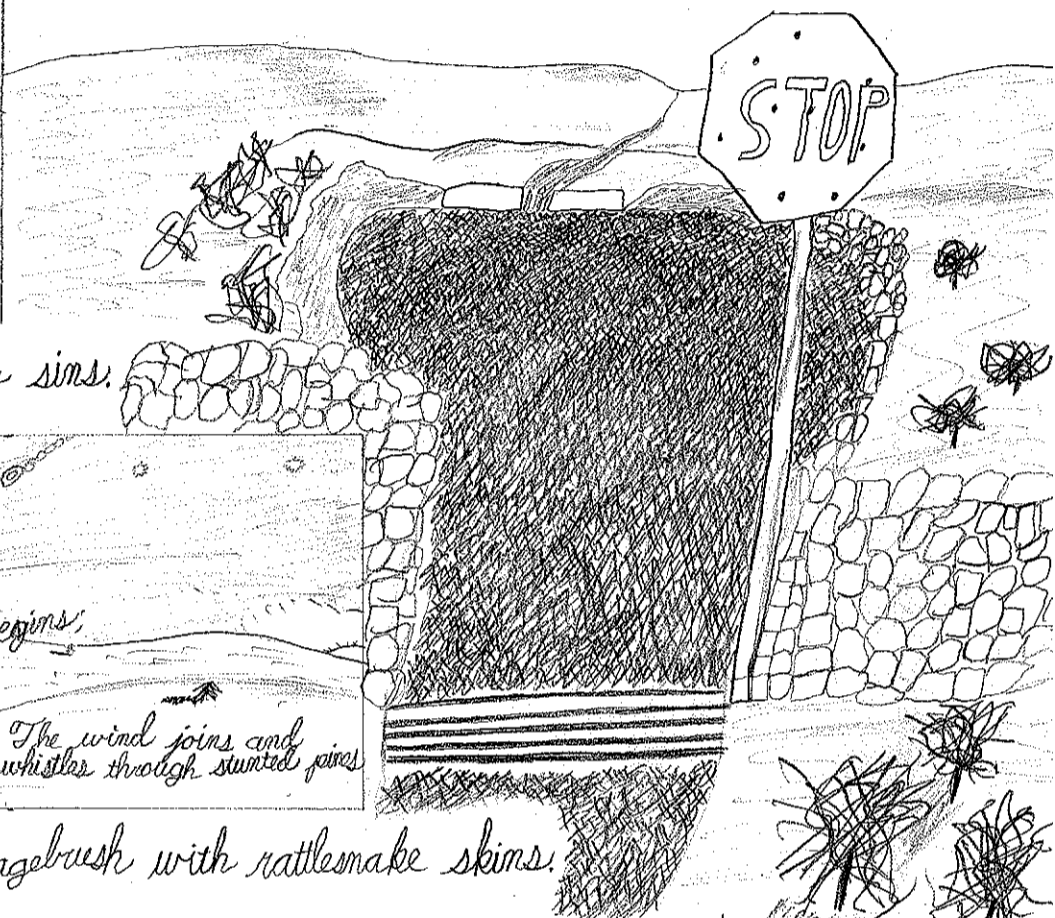 STOP
sins.
The wind joins and
whistles through stunted pines
with rattlesnake skins.